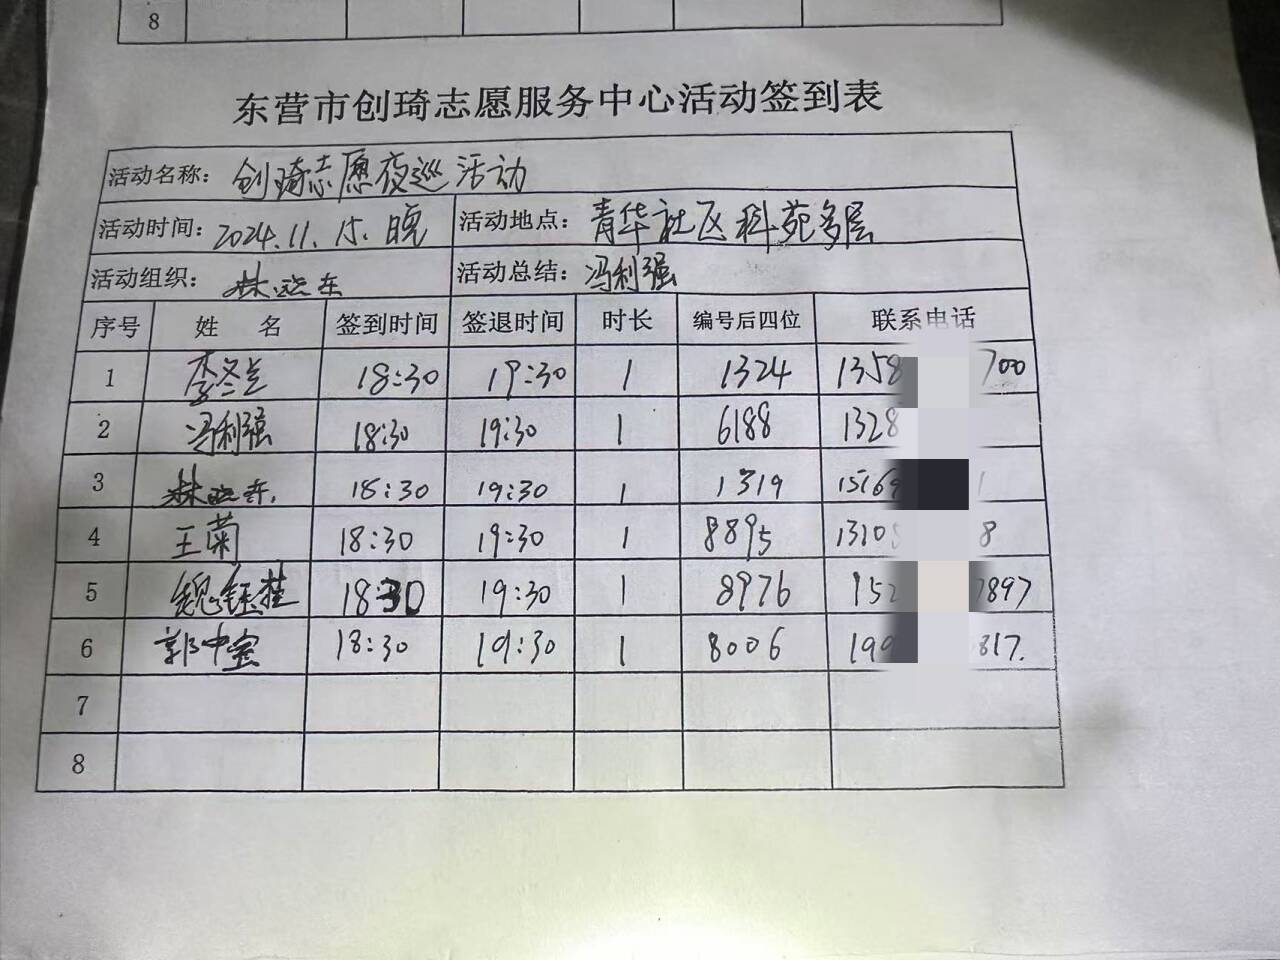 8
东营市创琦志愿服务中心活动签到表
活动名称：创琦志愿夜巡活动
活动时间：2024.11.15.晚 活动地点：青华社区科苑多层
活动组织：林晓东 活动总结：冯利强
序号 姓 名 签到时间 签退时间 时长 编号后四位 联系电话
1 李冬兰 18:30 19:30 1 1324 1358 700
2 冯利强 18:30 19:30 1 6188 1328
3 林晓东. 18:30 19:30 1 1319 1516 1
4 王菊 18:30 19:30 1 8895 1310 8
5 魏钰桂 18:30 19:30 1 8976 152 7897
6 郭中宝 18:30 19:30 1 8006 199 817.
7
8